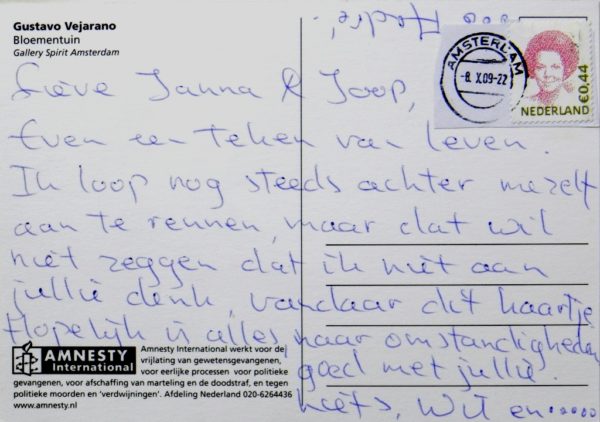 Gustavo Vejarano
Bloementuin
Gallery Spirit Amsterdam
AMSTERDAM
-8.X.09-22
NEDERLAND
€0,44
Lieve Janna & Joop,
Even een teken van leven.
Ik loop nog steeds achter mezelf
aan te rennen, maar dat wil
niet zeggen dat ik niet aan
jullie denk, vandaar dit kaartje
Hopelijk is alles, naar omstandigheden
goed met jullie.
liefs, Wil en.....
... Hodie,-.
AMNESTY
International
Amnesty International werkt voor de
vrijlating van gewetensgevangenen,
voor eerlijke processen voor politieke
gevangenen, voor afschaffing van marteling en de doodstraf, en tegen
politieke moorden en 'verdwijningen'. Afdeling Nederland 020-6264436
www.amnesty.nl